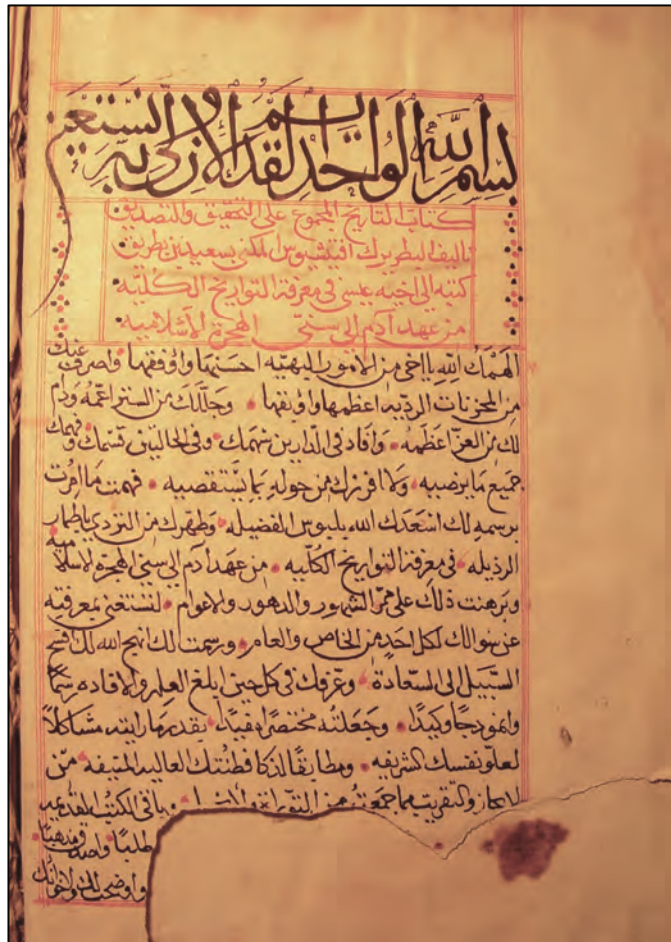 بسم الله الواحد القديم الازلي وبه نستعين
كتاب التاريخ المجموع على التحقيق والتصديق
تاليف البطريرك افتيشيوس المكنى بسعيد بن بطريق
كتبه الى اخيه عيسى في معرفة التواريخ الكليه
من عهد آدم الى سني الهجرة الاسلاميه
الهمك الله يا اخى من الامور البهيه احسنها واوفقها واصرف عنك
من المحزنات الرديه اعظمها واوبقها وجللك من الستر اعمه ودام
لك من العز اعظمه وافاد في الدارين سهمك وفي الحالين قسمك وفهمك
جميع ما يرضيه ولا افرزك من حوله بما تستقصيه فهمت ما امرت
برسمه لك اسعدك الله بلبوس الفضيله وطهرك من التردي باطمار
الرذيله في معرفة التواريخ الكليه من عهد آدم الى سني الهجرة الاسلاميه
وبرهنت ذلك على ممر الشهور والدهور والاعوام لتستغني بمعرفته
عن سوالك لكل احد من الخاص والعام ورسمت لك انهج الله لك افتح
السبيل الى السعادة وعرفك في كل حين ابلغ العلم والافاده رسمًا
وانموذجًا وكيدًا وجعلته مختصرًا مفيدًا بقدر ما رايته مشاكلًا
لعلو نفسك الشريفه ومطابقًا لذكا فطنتك العاليه المنيفه من
الايجاز والتقريب مما جمعته من التوراة وباقي الكتب القديمه
طلبًا
واوضحت لك ولاخوانك